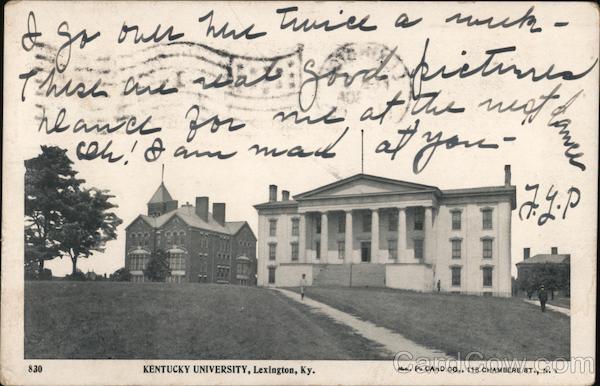 I go over here twice a week-
These are real good pictures
Chance for me at the next dance
Oh! I am mad at you-
F.Y.P
830
KENTUCKY UNIVERSITY, Lexington, Ky.
CARD CO., 118 CHAMBERS ST., N. Y.
CardCow.com